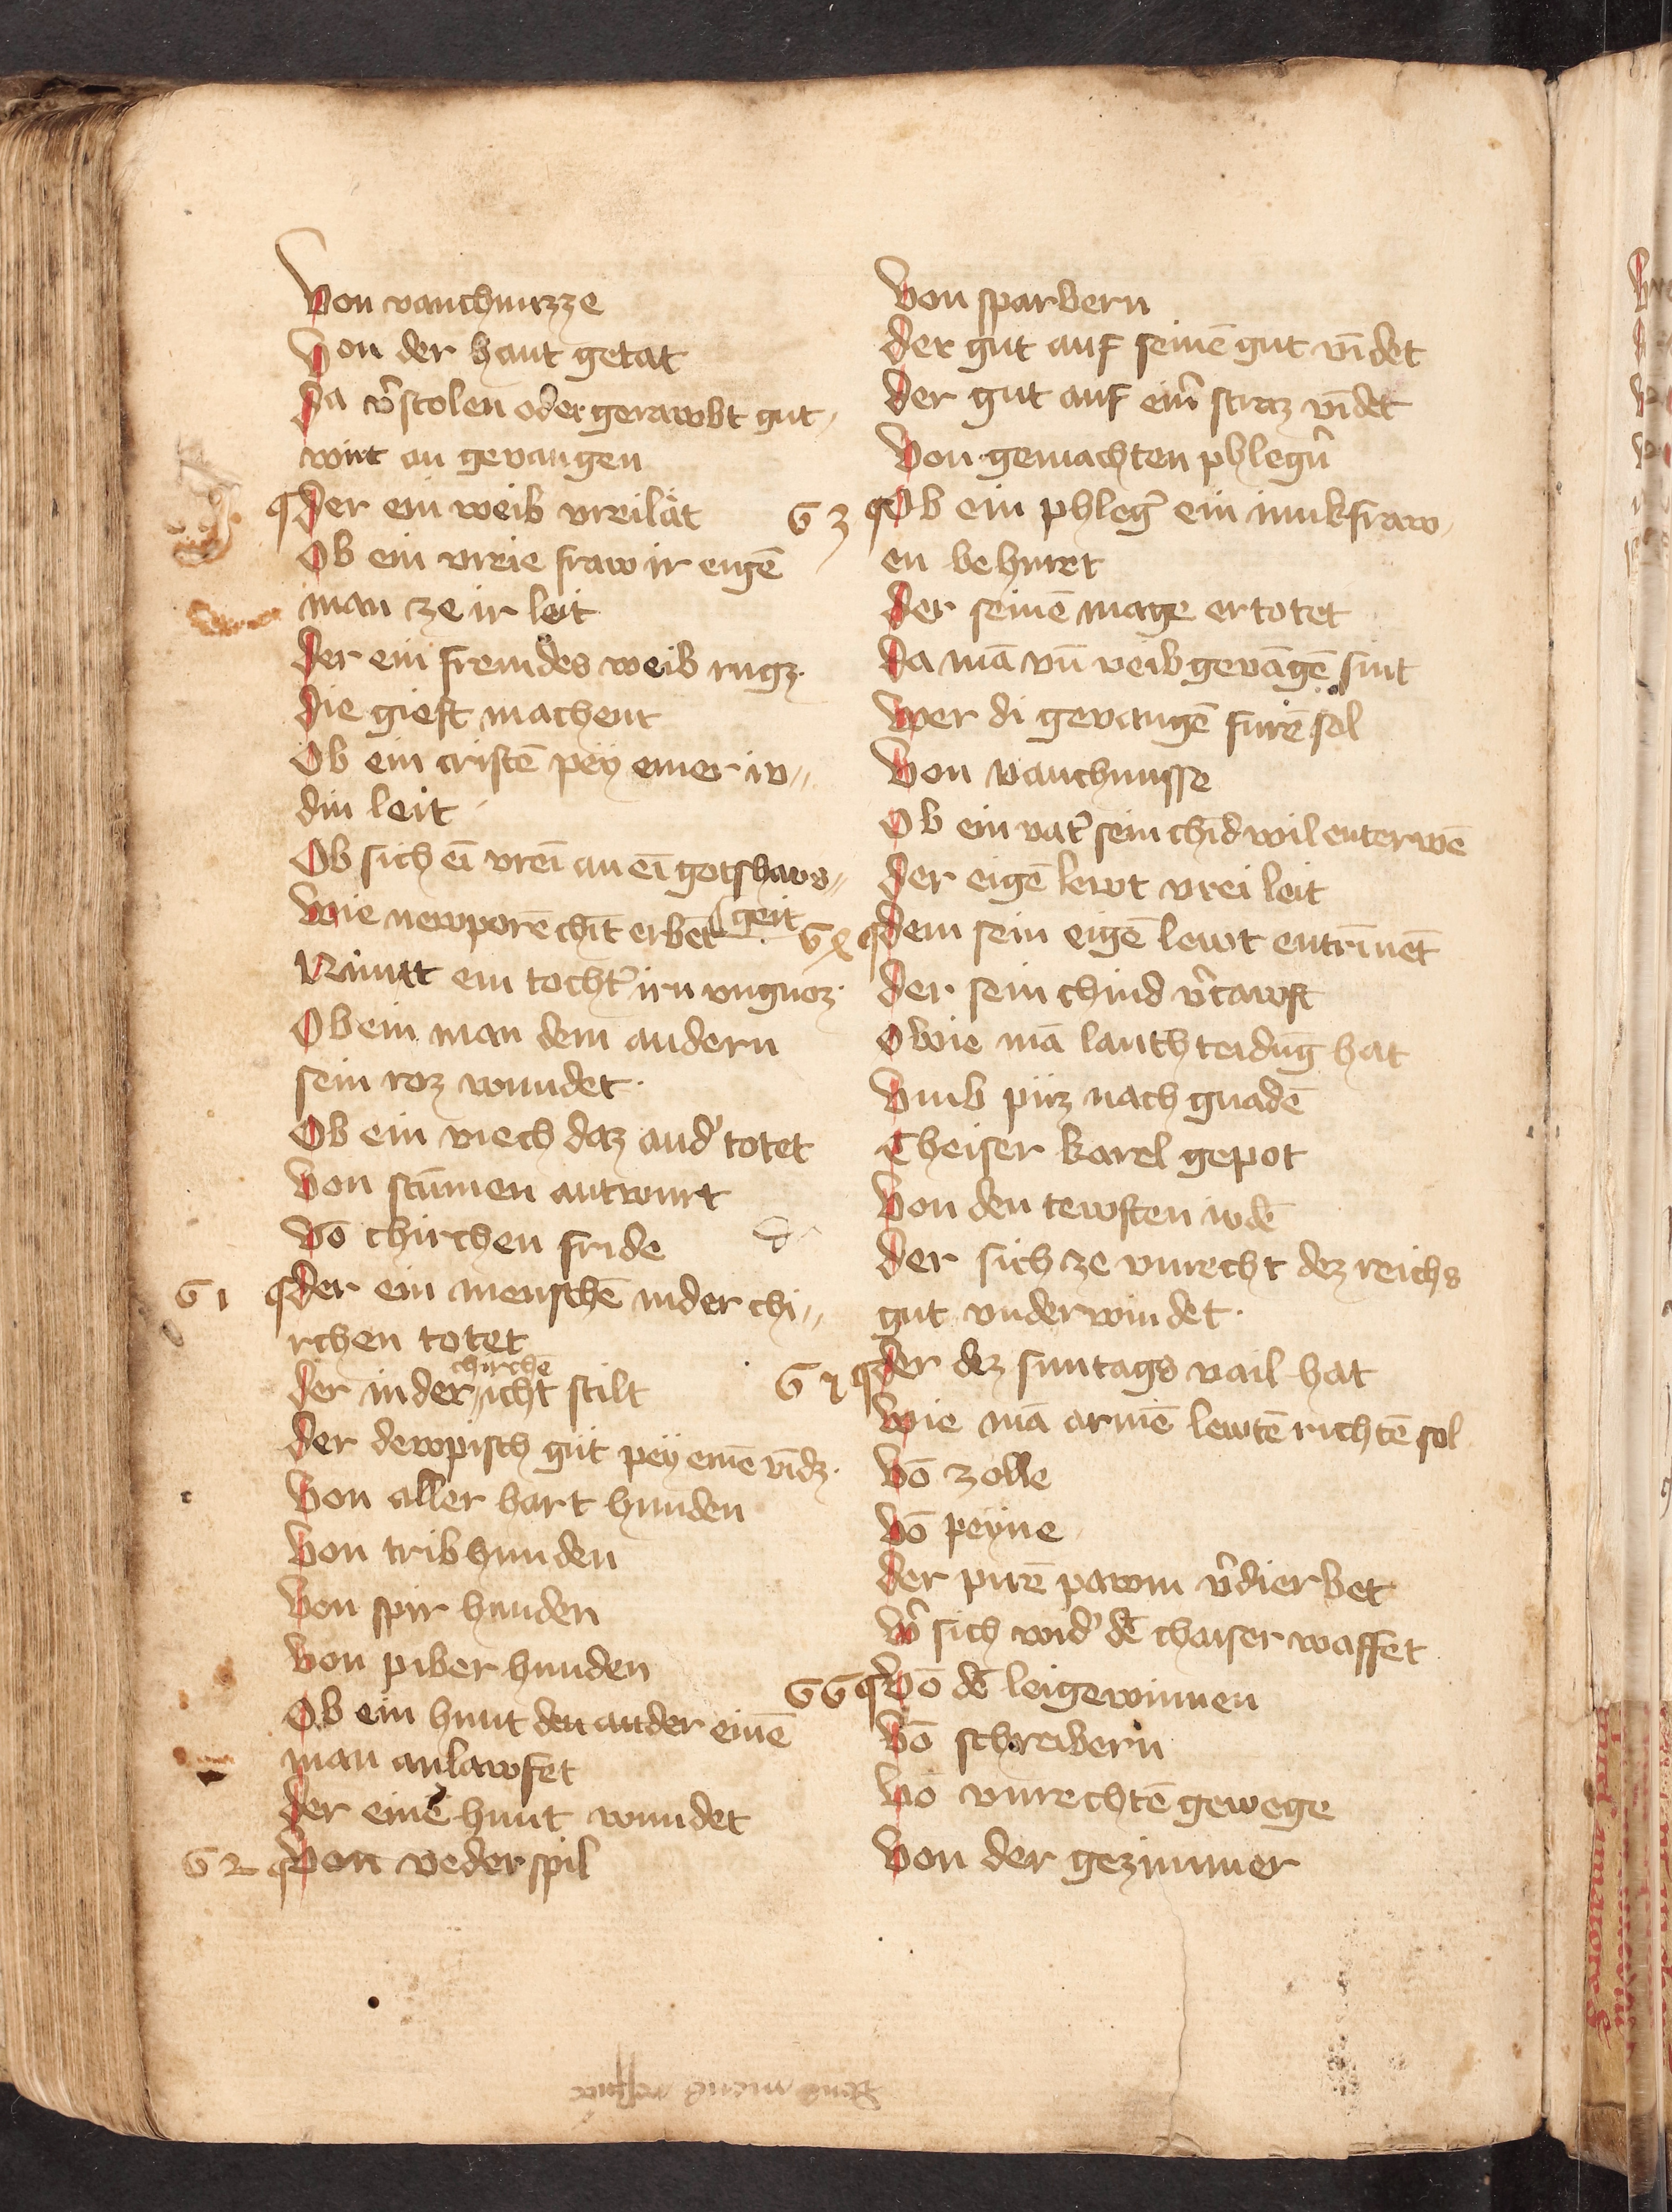 Von vanchnuzze
Von der hant getat
Da v̾stolen oder gerawbt gut
wirt an gevangen
Der ein weib vreilät
Ob ein vreie fraw ir eigē
man ze ir leit
Der ein fremdes weib rugz.
Die gieft machent
Ob ein cristē pey einer iv〃
din leit
Ob sich eī vreī an eī gotshaws〃
geit
Wie newporē chīt erbēt
Nimtt ein tocht̾ irn vngnoz.
Ob ein man dem andern
sein roz wundet.
Ob ein viech daz and̾ totet
Von stūmen antwurt
Vō chirchen fride
61 Der ein menschē inder chi〃
rchen totet
chirchē
Der in der icht stilt
Der dewpisch gut pey einē vīdz.
Von aller hart hunden
Von tribhunden
Von spir hunden
Von piber hunden
Ob ein hunt den ander einē
man anlawfet
Der einē hunt wundet
62 Von vederspil
Von sparbern
Der gut auf seinē gut vīdet
Der gut auf ein̾ straz vīdet
Von gemachten phleg̾n
63 Ob ein phleg̾ ein iunkfraw
en behurt
Der seinē mage ertotet
Da mā vn̄ weib gevāgē sint
Wer di gevangē furē sol
Von vanchnusse
Ob ein vat̾ sein chīd wil enterwē
Der eigē lewt vrei leit
64 Dem sein eigē lewt entrīnēt
Der sein chind v̾cawft
Owie mā lanthteidūg hat
Vmb püz nach gnadē
Cheiser karel gepot
Von den tewften iudē
Der sich ze vnrecht dez reichs
gut vnderwindet.
65 Der dez suntags vail hat
Wie mā armē lewtē richtē sol
Vō zolle
Vō peyne
Der pirē pawm v̾dierbet
W̾ sich wid̾ dē chaiser waffet
66 Vō dē leigewinnen
Vō schreibern
Vō vnrechtē gewege
Von der gezimmer